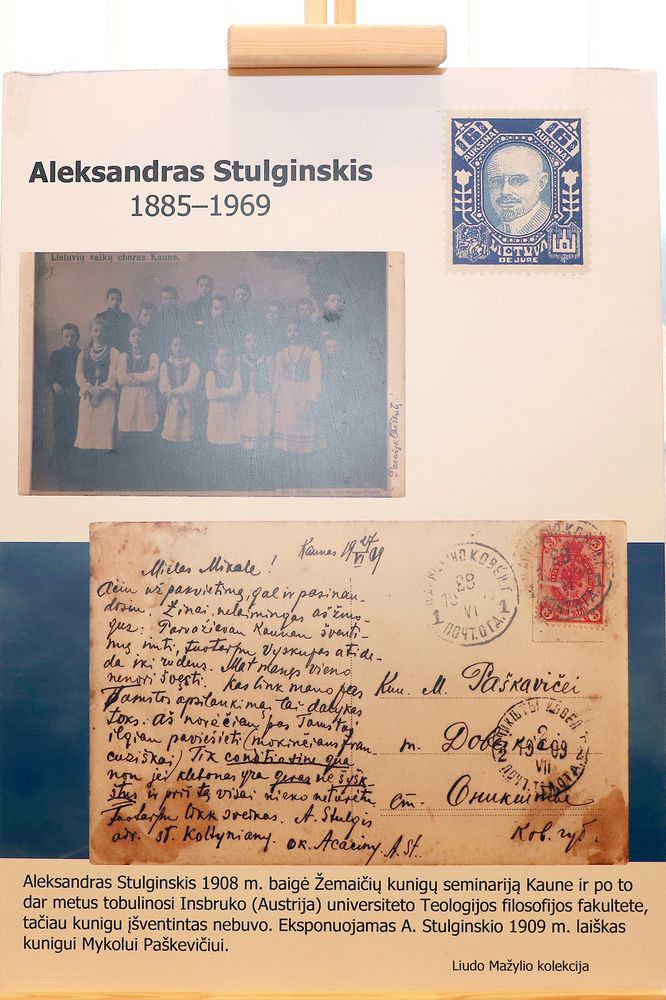 Aleksandras Stulginskis
1885–1969
16 AUKSINAI AUKSINAI 16
LIETUVA
DE JURE
Lietuvių vaikų choras. Kaune.
Kaunas 19 27/VI 09
Mielas Mikale!
Ačiu už pakvietimą, gal ir pasinau-
dosiu. Žinai, nelaimingas aš žmo-
gus: Parvažiavau Kaunan šventi-
mų imti, tuotarpu Vyskupas atidė-
da iki rudens. Mat manęs vieno
nenori švęsti. Kas link mano pas
Tamstos apsilankimą, tai dalykas
toks. Aš norėčiau pas Tamstą
ilgian paviešieti (mokinčiaus fran-
cuziškai) Tik conditio sine qua
non jei klebonas yra geras ne šykš-
tus ir prieš tą visai nieko neturėtų
Tuotarpu likk sveikas. A. Stulgis
adr. st. Koltyniany. ок. Acaciny. A. St.
Кс. M. Paškavičei
m. Доб
ст. Оникшты
Ков. губ.
28
VI
1 ПОЧТ.ОТД. 1
2
19 09
VII
Aleksandras Stulginskis 1908 m. baigė Žemaičių kunigų seminariją Kaune ir po to
dar metus tobulinosi Insbruko (Austrija) universiteto Teologijos filosofijos fakultete,
tačiau kunigu įšventintas nebuvo. Eksponuojamas A. Stulginskio 1909 m. laiškas
kunigui Mykolui Paškevičiui.
Liudo Mažylio kolekcija